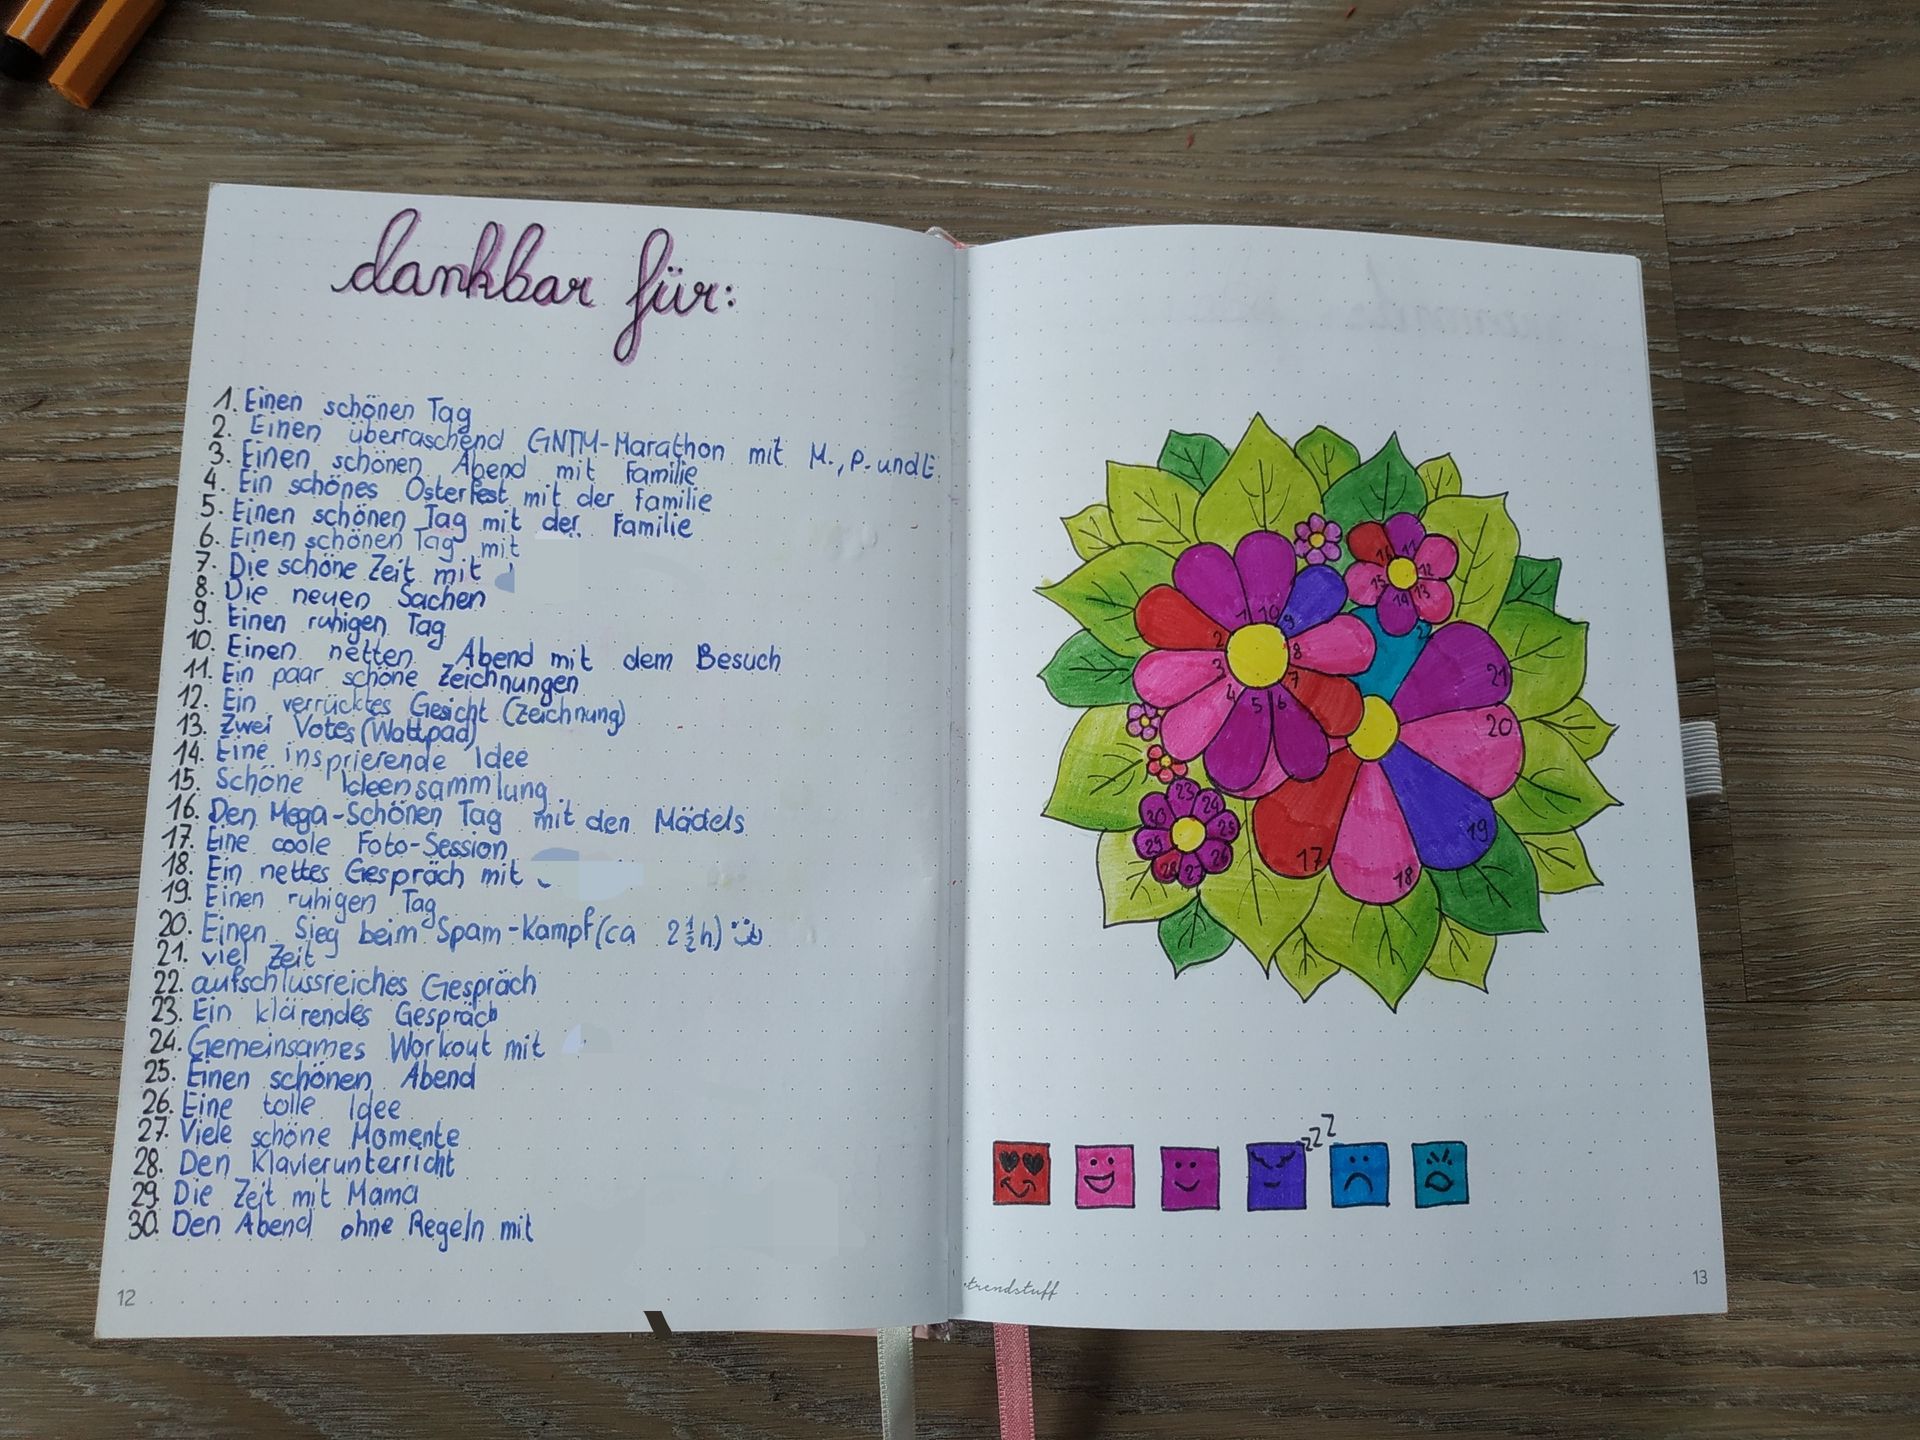 dankbar für:
1. Einen schönen Tag
2. Einen überraschend GNTM-Marathon mit M., P. und E.
3. Einen schönen Abend mit Familie
4. Ein schönes Osterfest mit der Familie
5. Einen schönen Tag mit der Familie
6. Einen schönen Tag mit
7. Die schöne Zeit mit
8. Die neuen Sachen
9. Einen ruhigen Tag
10. Einen netten Abend mit dem Besuch
11. Ein paar schöne Zeichnungen
12. Ein verrücktes Gesicht (Zeichnung)
13. Zwei Votes (Wattpad)
14. Eine insprierende Idee
15. Schöne Ideensammlung
16. Den Mega-Schönen Tag mit den Mädels
17. Eine coole Foto-Session
18. Ein nettes Gespräch mit
19. Einen ruhigen Tag
20. Einen Sieg beim Spam-Kampf (ca 2 1/2 h)
21. viel Zeit
22. aufschlussreiches Gespräch
23. Ein klärendes Gespräch
24. Gemeinsames Workout mit
25. Einen schönen Abend
26. Eine tolle Idee
27. Viele schöne Momente
28. Den Klavierunterricht
29. Die Zeit mit Mama
30. Den Abend ohne Regeln mit
12
1
2
3
4
5
6
7
8
9
10
11
12
13
14
15
16
17
18
19
20
21
22
23
24
25
26
27
28
29
30
zzz
trendstuff
13